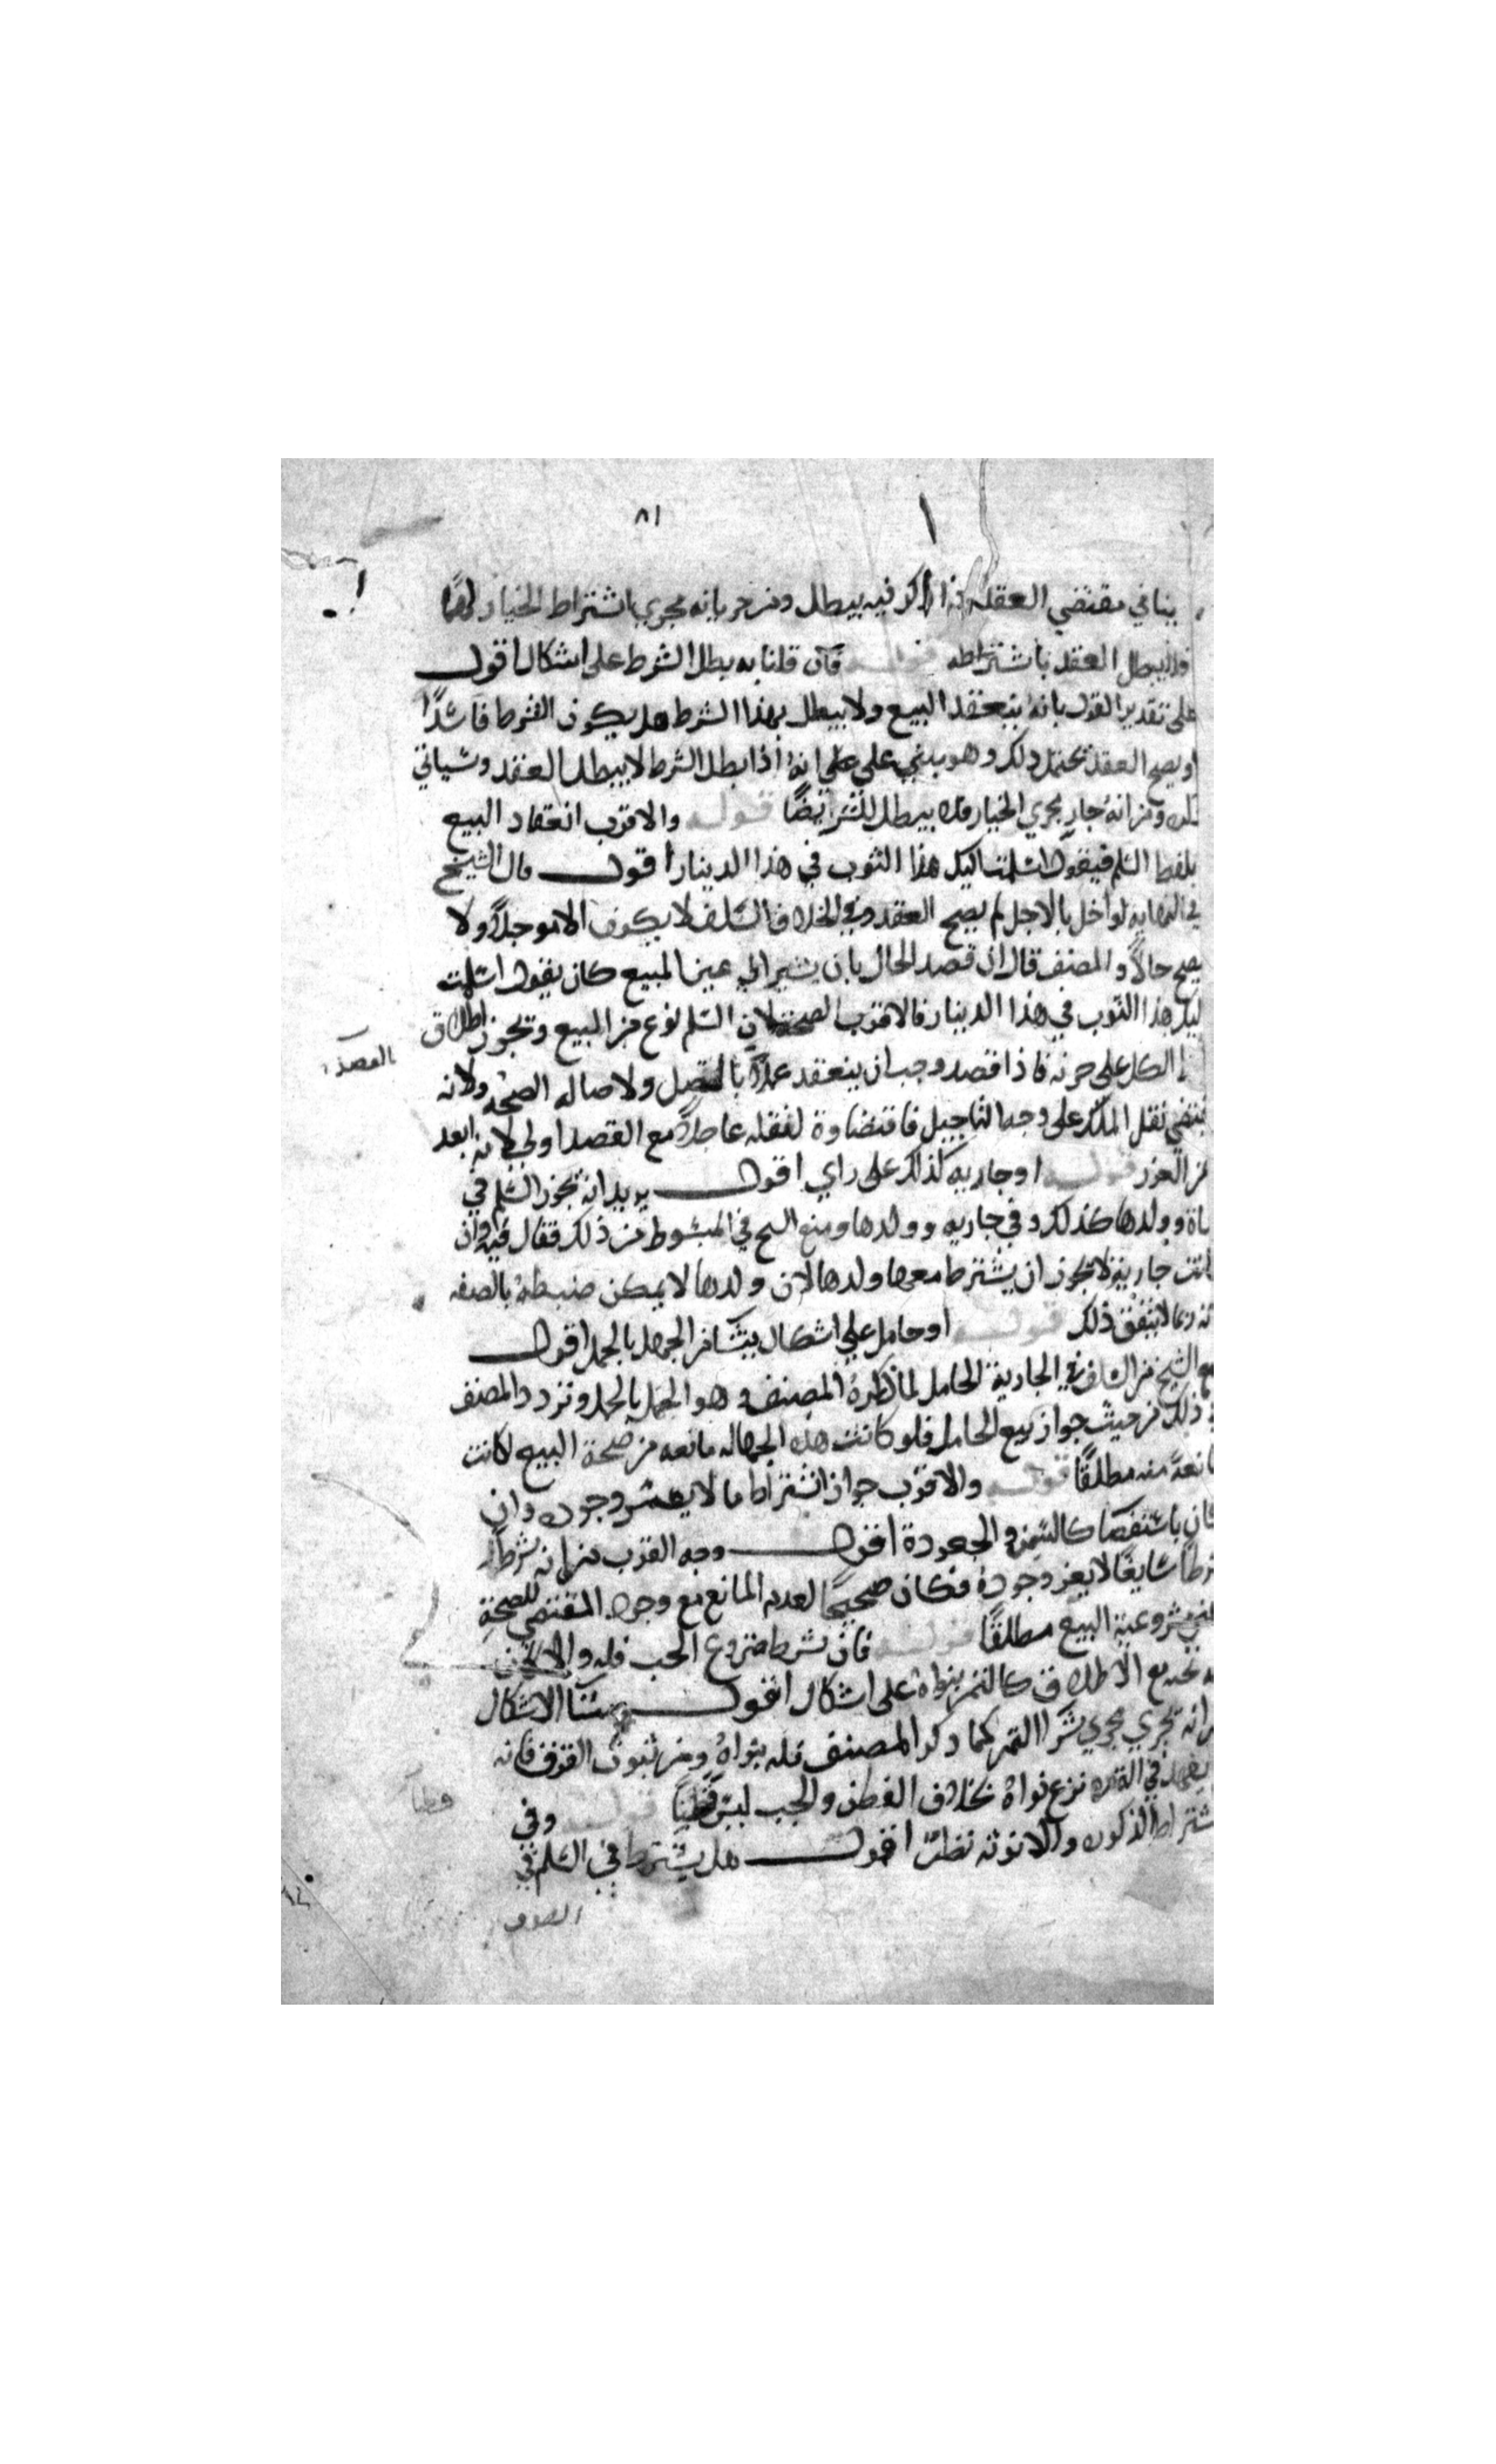 ٨١
ينافي مقتضي العقد فاذا ذكر فيه يبطل ومن حر يانه مجري اشتراط الخيار لهما
فلا يبطل العقد باشتراطه قوله فان قلنا به بطل الشرط على اشكال اقول
على تقدير القول بانه ينعقد البيع ولا يبطل بهذا الشرط هل يكون الشرط فاسدًا
او يصح العقد يحتمل ذلك وهو يبني علي علي انه اذا بطل الشرط لا يبطل العقد وسياتي
ومن انه جار مجري الخيار فلا يبطل الشرط ايضًا قوله والاقرب انعقاد البيع
بلفظ السلم فيقول اسلمت اليك هذا الثوب في هذا الدينار اقول قال الشيخ
في النهايه لو اخل بالاجل لم يصح العقد وفي الخلاف السلف لا يكون الا موجلاً ولا
يصح حالاً والمصنف قال ان قصد الحال بان يشير الي عين المبيع كان يقول اسلمت
اليك هذا الثوب في هذا الدينار فالاقرب الصحة لان السلم نوع من البيع ويجوز اطلاق
الكل علي جزئه فاذا قصد وجب ان ينعقد عملاً بالقصد ولاصاله الصحه ولانه
العصد
يقتضي نقل الملك على وجه التاجيل فاقتضاوة لنقله عاجلاً مع القصد اولي لانه ابعد
من الغرر قوله او جاريه كذلك على راي اقول يريد انه يجوز السلم في
شاة وولدها كذلك وفي جاريه وولدها ومنع الشيخ في المبسوط من ذلك فقال فيه وان
كانت جارية لا يجوز ان يشترط معها ولدها لان ولدها لا يمكن ضبطه بالصفه
لانه ربما لا يتفق ذلك قوله او حامل علي اشكال ينشا من الجهل بالحمل اقول
منع الشيخ من السلف في الجارية الحامل لما ذكره المصنف وهو الجهل بالحمل وتردد المصنف
في ذلك من حيث جواز بيع الحامل فلو كانت هذه الجهاله مانعه من صحة البيع لكانت
مانعة منه مطلقًا قوله والاقرب جواز اشتراط ما لا يعسر وجوده وان
كان باستقصا كالسمن والجعودة اقول وجه القرب من انه شرط
شرطًا سايغًا لا يعز وجوده فكان صحيحًا لعدم المانع مع وجود المقتضي للصحة
مشروعية البيع مطلقًا قوله فان شرط منزوع الحب فله والا
بحبه مع الاطلاق كالتمر بنواه على اشكال اقول منشا الاشكال
من انه يجري مجري شرا التمر كما ذكر المصنف فله بنواه ومن ثبوت الفرق فانه
في التمره نزع نواه بخلاف القطن والحب ليس قطنًا قوله وفي
قطنا
اشتراط الذكوره والانوثه نظر اقول هل يشترط في السلم في
الصوف